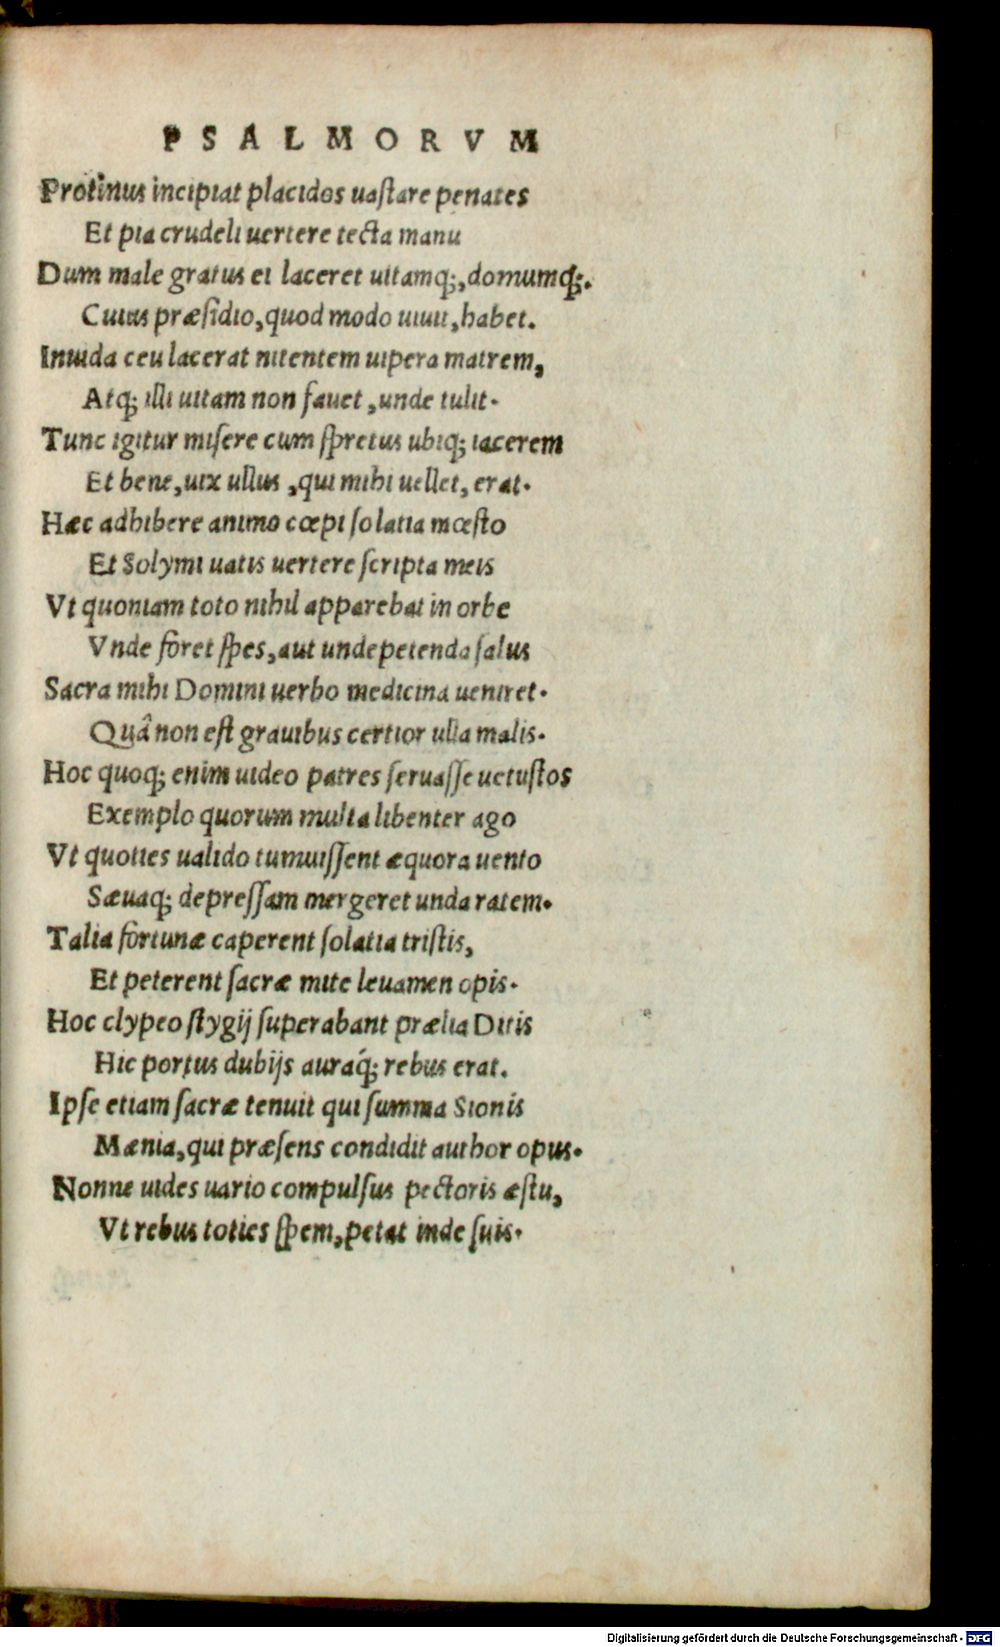 PSALMORVM
Protinus incipiat placidos uaſtare penates
Et pia crudeli uertere tecta manu
Dum male gratus ei laceret uitamq;, domumq;.
Cuius præſidio, quod modo uiuit, habet.
Inuida ceu lacerat nitentem uipera matrem,
Atq; illi uitam non fauet, unde tulit.
Tunc igitur miſere cum ſpretus ubiq; iacerem
Et bene, uix ullus, qui mihi uellet, erat.
Hæc adhibere animo cœpi ſolatia mœſto
Et Solymi uatis uertere ſcripta meis
Vt quoniam toto nihil apparebat in orbe
Vnde foret ſpes, aut unde petenda ſalus
Sacra mihi Domini uerbo medicina ueniret.
Quâ non eſt grauibus certior ulla malis.
Hoc quoq; enim uideo patres ſeruaſſe uetuſtos
Exemplo quorum multa libenter ago
Vt quoties ualido tumuiſſent æquora uento
Sæuaq; depreſſam mergeret unda ratem.
Talia fortunæ caperent ſolatia triſtis,
Et peterent ſacræ mite leuamen opis.
Hoc clypeo ſtygij ſuperabant prælia Ditis
Hic portus dubijs auraq́; rebus erat.
Ipſe etiam ſacræ tenuit qui ſumma Sionis
Mænia, qui præſens condidit author opus.
Nonne uides uario compulſus pectoris æſtu,
Vt rebus toties ſpem, petat inde ſuis.
Digitalisierung gefördert durch die Deutsche Forschungsgemeinschaft - DFG